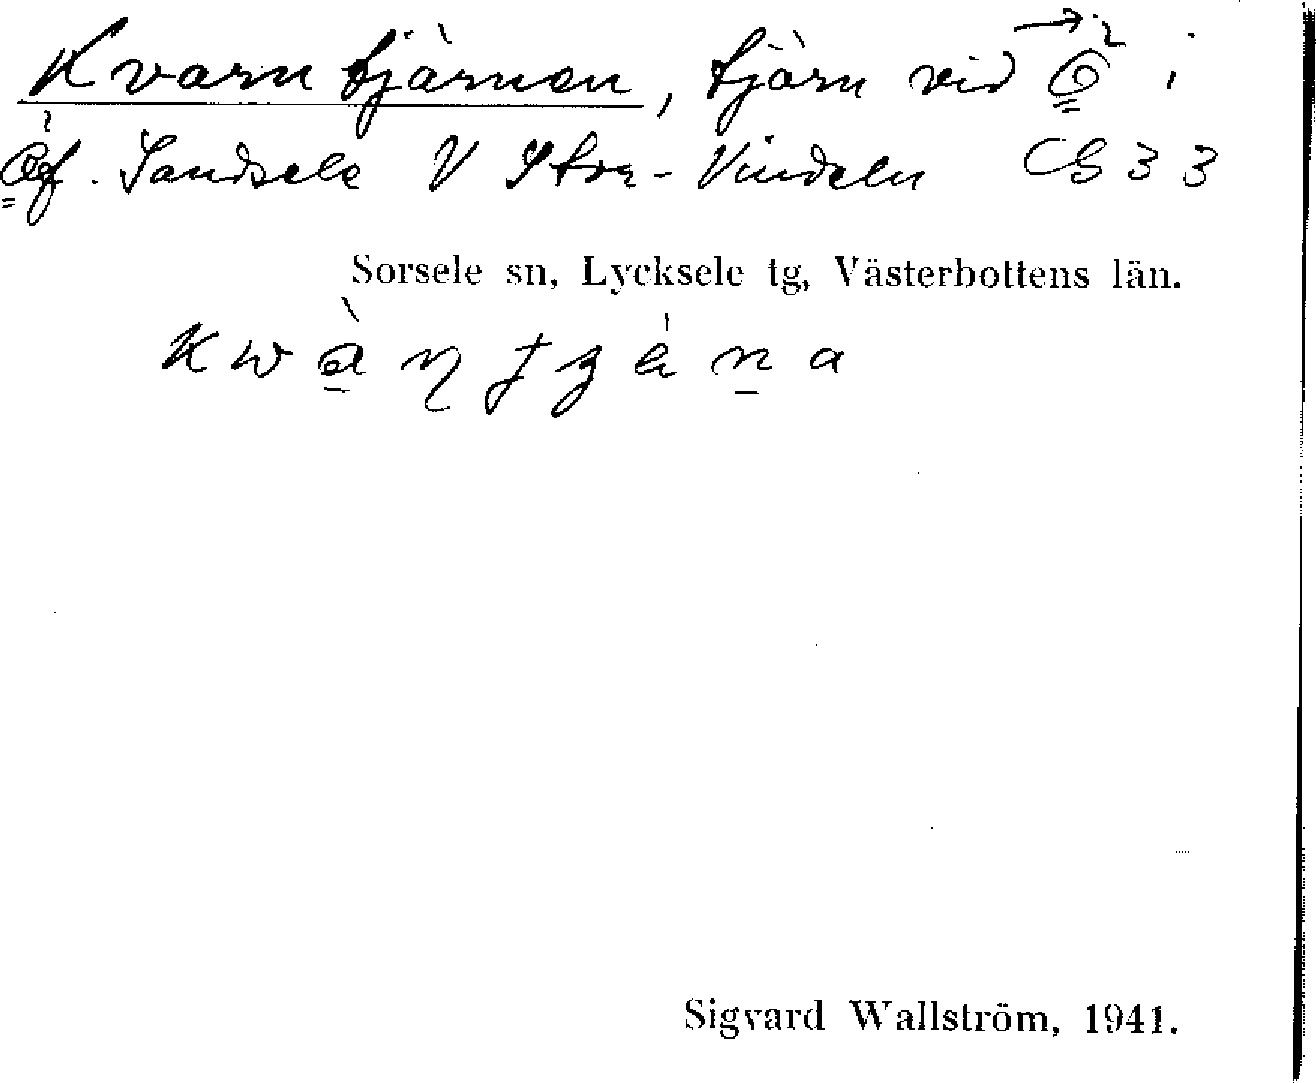 Kvarntjärnen, tjärn vid Ö i
Öf. Sandsele V Stor-Vindeln CG 33
Sorsele sn, Lycksele tg, Västerbottens län.
Sigvard Wallström, 1941.